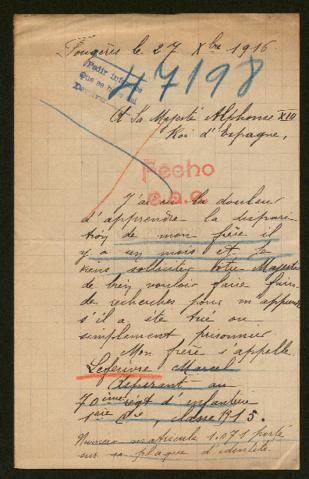 Fougères le 27 Xbre 1916
Pedir informe
Que se ha
H 7198
A Sa Majesté Alphonse XIII
Roi d'Espagne,
Fecho
J'ai eu la douleur
d'apprendre la dispari-
tion de mon frère il
y a un mois et je
viens solliciter votre Majesté
de bien vouloir faire faire
de recherches pour m'apprendre
s'il a été tué ou
simplement prisonnier
Mon frère s'appelle
Lefeuvre Marcel
au
70ème régt d'infanterie
1ère Cie, classe 1915
Numéro matricule 1.071 porté
sur sa plaque d'identité.